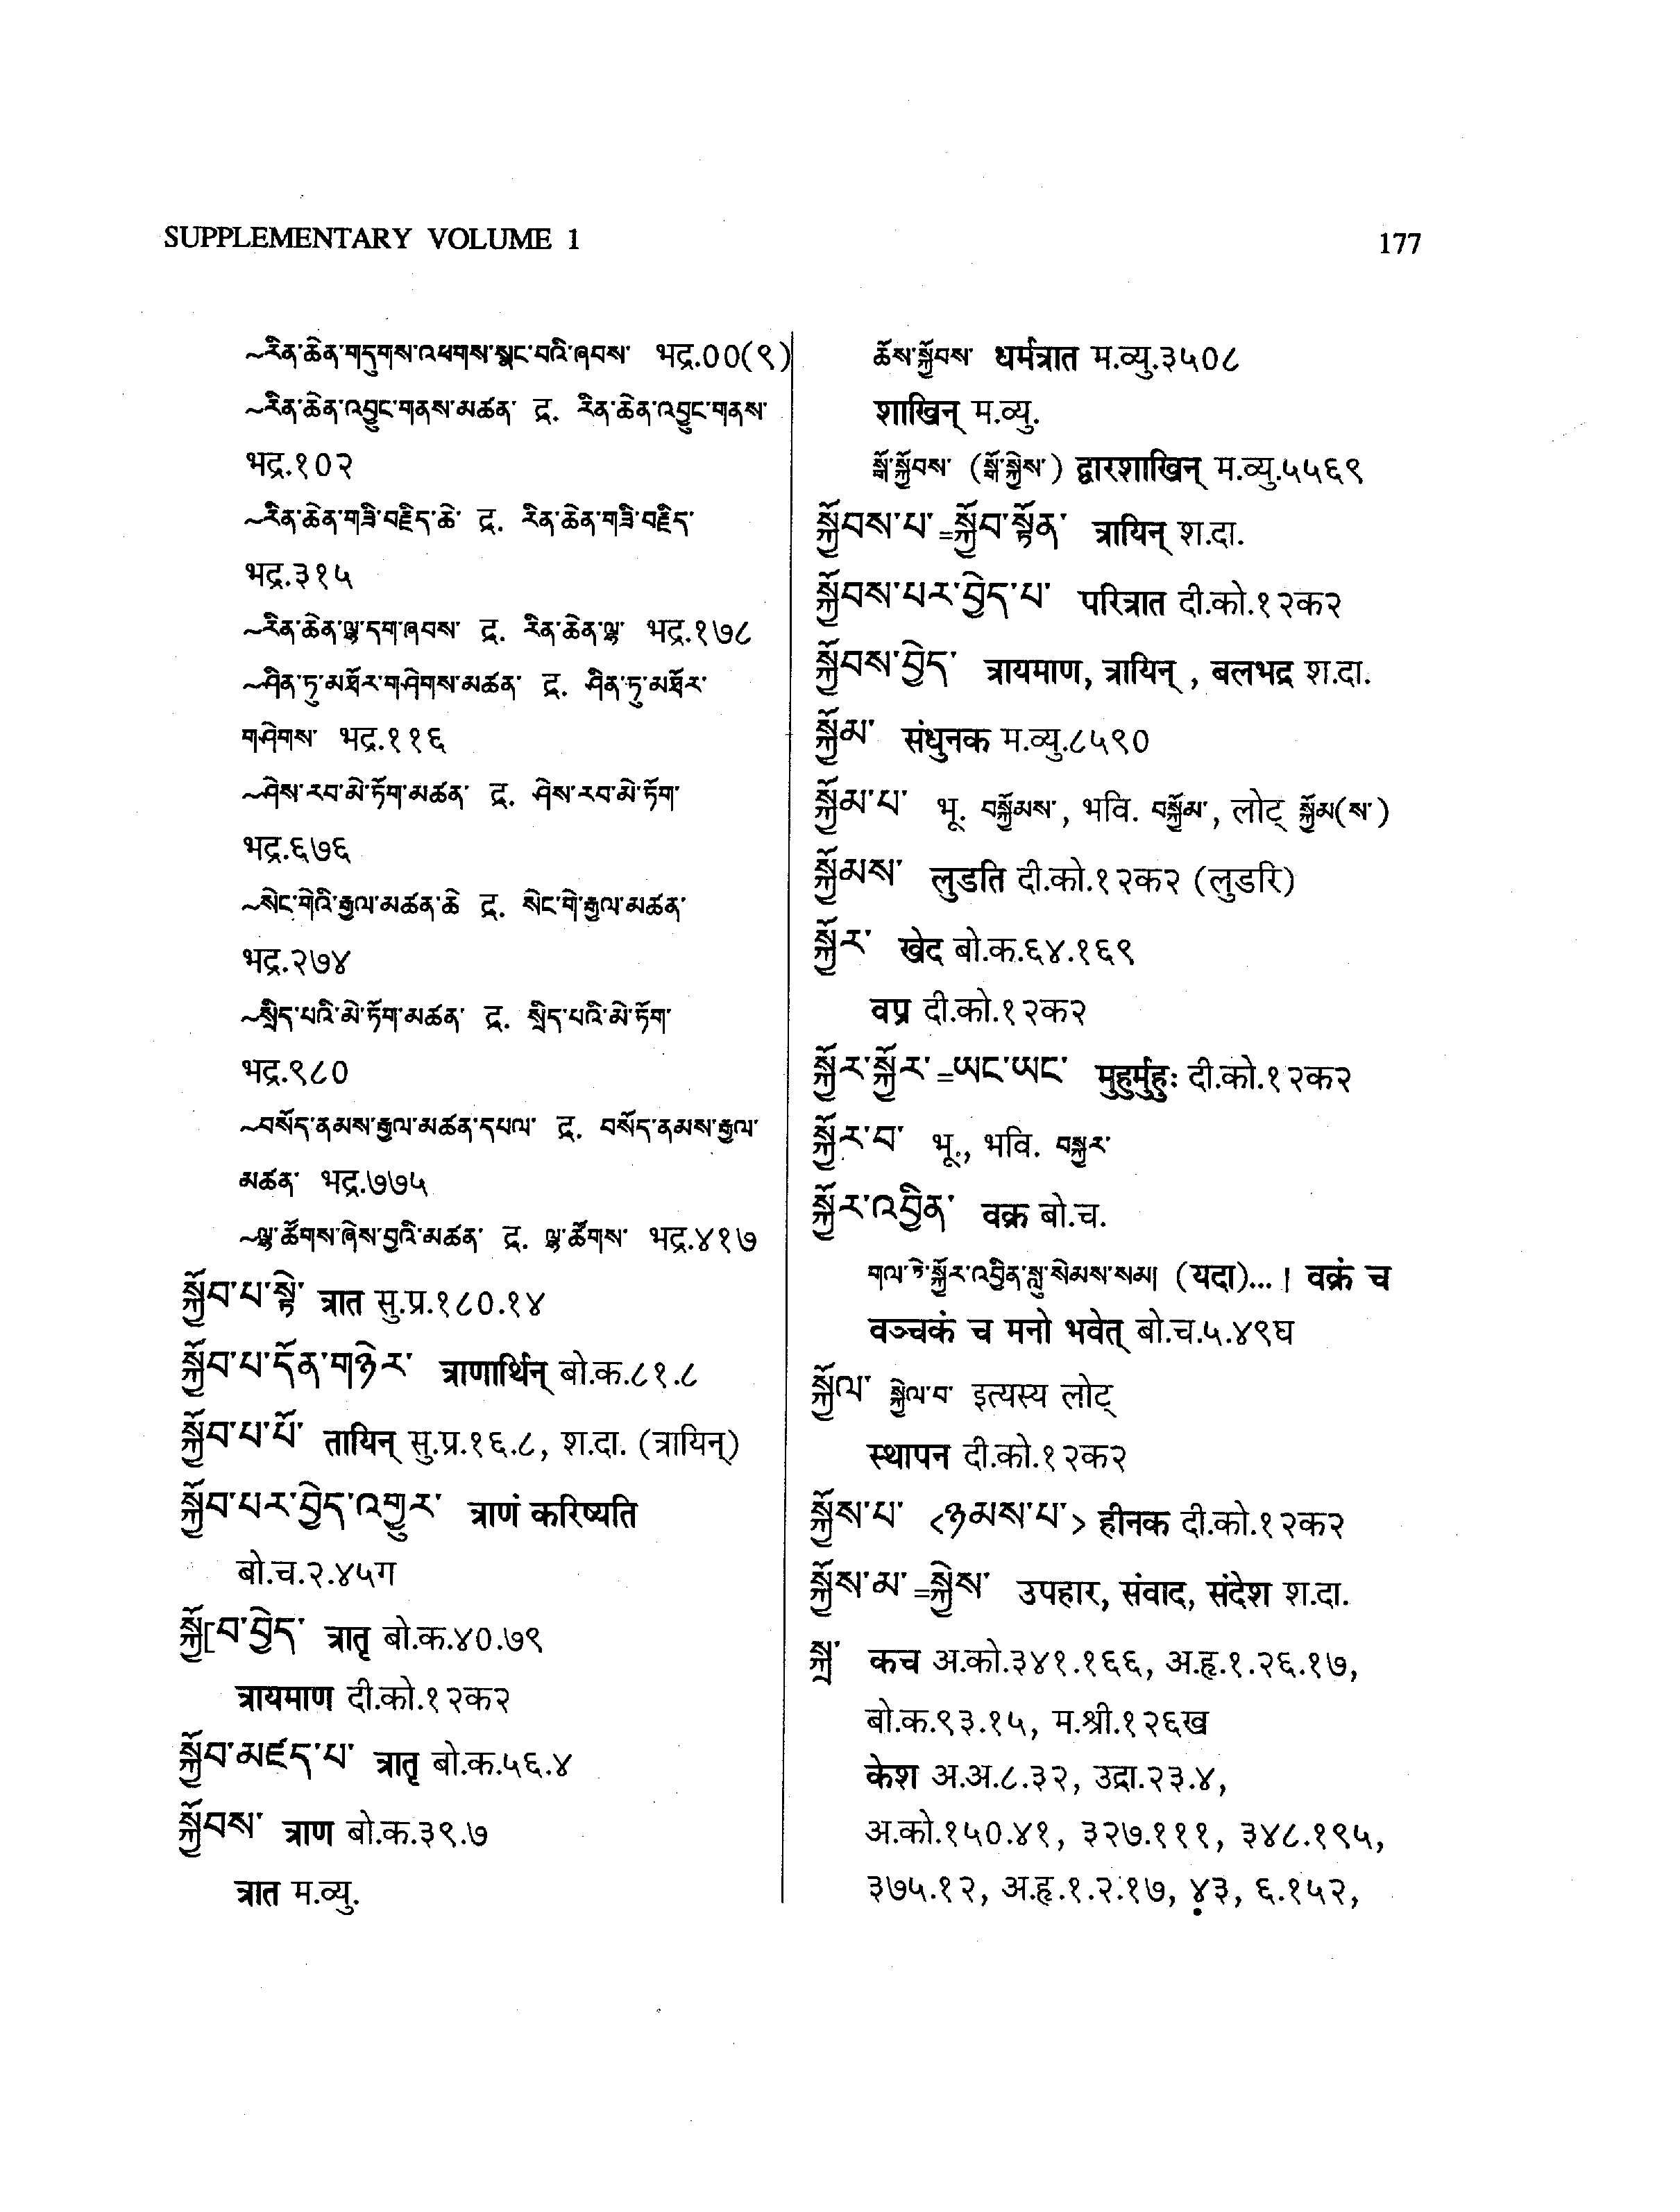 SUPPLEMENTARY VOLUME 1
177
~རིན་ཆེན་གདུགས་འཕགས་སྣང་བའི་ཞབས་ भद्र.00(९)
~རིན་ཆེན་འབྱུང་གནས་མཚན་ द्र. རིན་ཆེན་འབྱུང་གནས་
भद्र.१०२
~རིན་ཆེན་གཟི་བརྗིད་ཆེ་ द्र. རིན་ཆེན་གཟི་བརྗིད་
भद्र.३१५
~རིན་ཆེན་ལྷ་དག་ཞབས་ द्र. རིན་ཆེན་ལྷ་ भद्र.१७८
~ཤིན་ཏུ་མཐོར་གཤེགས་མཚན་ द्र. ཤིན་ཏུ་མཐོར་
གཤེགས་ भद्र.११६
~ཤེས་རབ་མེ་ཏོག་མཚན་ द्र. ཤེས་རབ་མེ་ཏོག་
भद्र.६७६
~སེང་གེའི་རྒྱལ་མཚན་ཆེ द्र. སེང་གེ་རྒྱལ་མཚན་
भद्र.२७४
~སྲིད་པའི་མེ་ཏོག་མཚན་ द्र. སྲིད་པའི་མེ་ཏོག་
भद्र.९८०
~བསོད་ནམས་རྒྱལ་མཚན་དཔལ་ द्र. བསོད་ནམས་རྒྱལ་
མཚན་ भद्र.७७५
~ལྷ་ཚོགས་ཞེས་བྱའི་མཚན་ द्र. ལྷ་ཚོགས་ भद्र.४१७
སྐྱོབ་པ་སྟེ་ त्रात सु.प्र.१८०.१४
སྐྱོབ་པ་དོན་གཉེར་ त्राणार्थिन् बो.क.८१.८
སྐྱོབ་པ་པོ་ तायिन् सु.प्र.१६.८, श.दा. (त्रायिन्)
སྐྱོབ་པར་བྱེད་འགྱུར་ त्राणं करिष्यति
बो.च.२.४५ग
སྐྱོ[བ་བྱེད་ त्रातृ बो.क.४०.७९
त्रायमाण दी.को.१२क२
སྐྱོབ་མཛད་པ་ त्रातृ बो.क.५६.४
སྐྱོབས་ त्राण बो.क.३९.७
त्रात म.व्यु.
ཆོས་སྐྱོབས་ धर्मत्रात म.व्यु.३५०८
शाखिन् म.व्यु.
སྒོ་སྐྱོབས་ (སྒོ་སྐྱེས་) द्वारशाखिन् म.व्यु.५५६९
སྐྱོབས་པ་=སྐྱོབ་སྟོན་ त्रायिन् श.दा.
སྐྱོབས་པར་བྱེད་པ་ परित्रात दी.को.१२क२
སྐྱོབས་བྱེད་ त्रायमाण, त्रायिन् , बलभद्र श.दा.
སྐྱོམ་ संधुनक म.व्यु.८५९०
སྐྱོམ་པ་ भू. བསྐྱོམས་, भवि. བསྐྱོམ་, लोट् སྐྱོམ(ས་)
སྐྱོམས་ लुडति दी.को.१२क२ (लुडरि)
སྐྱོར་ खेद बो.क.६४.१६९
वप्र दी.को.१२क२
སྐྱོར་སྐྱོར་=ཡང་ཡང་ मुहुर्मुहुः दी.को.१२क२
སྐྱོར་བ་ भू., भवि. བསྐྱར་
སྐྱོར་འབྱིན་ वक्र बो.च.
གལ་ཏེ་སྐྱོར་འབྱིན་སླུ་སེམས་སམ། (यदा)...। वक्रं च
वञ्चकं च मनो भवेत् बो.च.५.४९घ
སྐྱོལ་ སྐྱེལ་བ་ इत्यस्य लोट्
स्थापन दी.को.१२क२
སྐྱོས་པ་ <ཉམས་པ་> हीनक दी.को.१२क२
སྐྱོས་མ་=སྐྱེས་ उपहार, संवाद, संदेश श.दा.
སྐྲ་ कच अ.को.३४१.१६६, अ.हृ.१.२६.१७,
बो.क.९३.१५, म.श्री.१२६ख
केश अ.अ.८.३२, उद्रा.२३.४,
अ.को.१५०.४१, ३२७.१११, ३४८.१९५,
३७५.१२, अ.हृ.१.२.१७, ४३, ६.१५२,